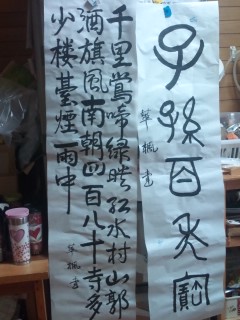 子孫百寶
楓書
千里鶯啼绿映红水村山郭
酒旗風南朝四百八十寺多
少楼臺煙雨中
楓書